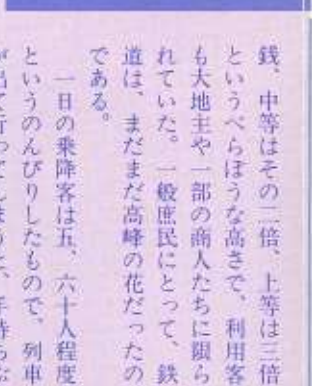 銭、中等はその二倍、上等は三倍
というべらぼうな高さで、利用客
も大地主や一部の商人たちに限ら
れていた。一般庶民にとって、鉄
道は、まだまだ高峰の花だったの
である。
一日の乗降客は五、六十人程度
というのんびりしたもので、列車